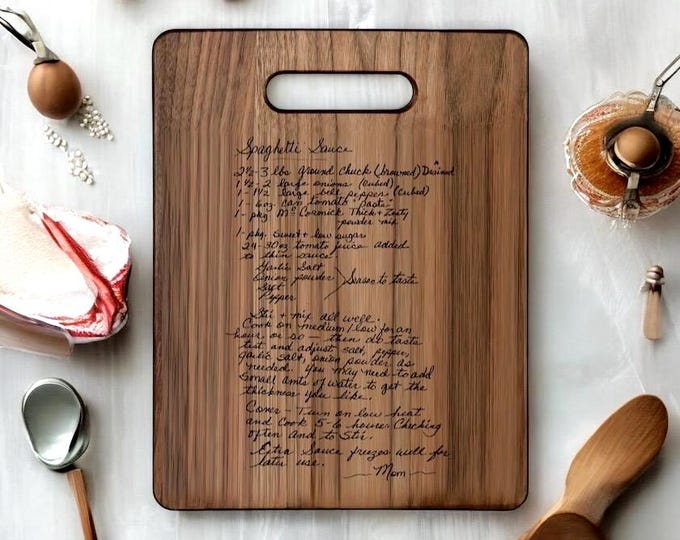 Spaghetti Sauce
2 1/2-3 lbs ground chuck (browned) Drained
1 1/2-2 large onions (cubed)
1-1 1/2 large bell peppers (cubed)
1-6oz. can tomato "paste"
1-pkg Mc Cormick Thick + Zesty
powder mix
1-pkg. Sweet + low sugar
24-30oz tomato juice added
to thin sauce.
Garlic Salt
Onion powder > Season to taste
Salt
Pepper
Stir + mix all well.
Cook on medium/low for an
hour or so - then do taste
test and adjust salt, pepper,
garlic salt, onion powder as
needed. You may need to add
small amts of water to get the
thickness you like.
Cover - Turn on low heat
and Cook 5-6 hours. Checking
often and to Stir.
Extra Sauce freezes well for
later use.
Mom